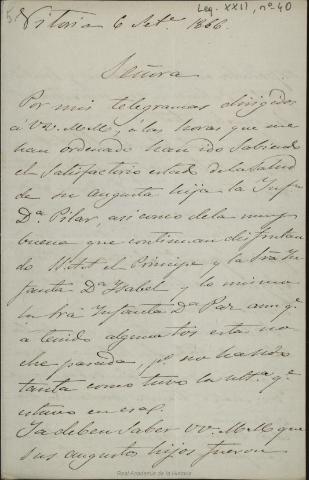 5
Leg. XXII, nº 40
Vitoria 6 Set.e 1866.
Señora
Por mis telegramas dirigidos
á VV. MM, á las horas que me
han ordenado han ido sabiendo
el satisfactorio estado de la salud
de su augusta hija la Infta
Dª Pilar, asi como de la muy
buena que continuan disfrutan
do el Principe y la
fanta Dª Isabel y lo mismo
la Infanta Dª Paz aunq.e
á tenido alguna tos esta no
che pasada, p.o no ha sido
tanta como tuvo la ult.a q.e
estuvo en esa.
Ya deben saber VV. MM que
sus augustos hijos fueron
Real Academia de la Historia